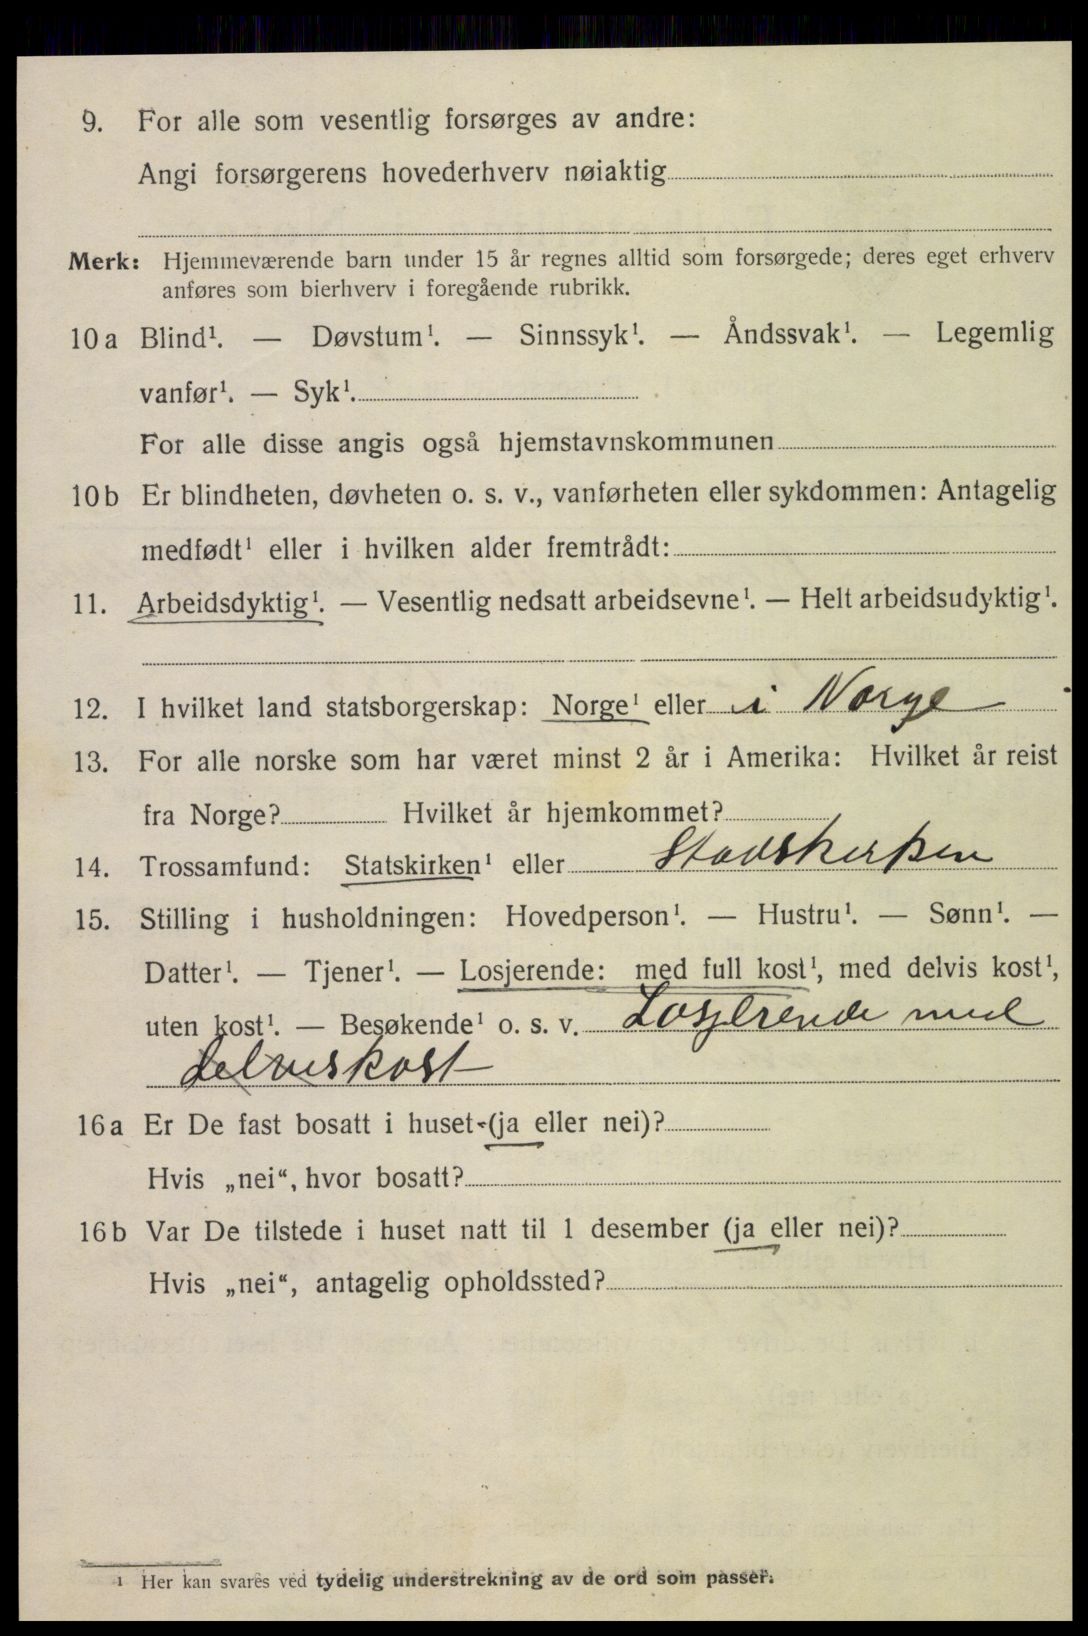 9. For alle som vesentlig forsørges av andre:
Angi forsørgerens hovederhverv nøiaktig
Merk: Hjemmeværende barn under 15 år regnes alltid som forsørgede; deres eget erhverv
anføres som bierhverv i foregående rubrikk.
10 a Blind¹. — Døvstum¹. — Sinnssyk¹. — Åndssvak¹. — Legemlig
vanfør¹. — Syk¹.
For alle disse angis også hjemstavnskommunen
10 b Er blindheten, døvheten o. s. v., vanførheten eller sykdommen: Antagelig
medfødt¹ eller i hvilken alder fremtrådt:
11. Arbeidsdyktig¹. — Vesentlig nedsatt arbeidsevne¹. — Helt arbeidsudyktig¹.
12. I hvilket land statsborgerskap: Norge¹ eller i Norge
13. For alle norske som har været minst 2 år i Amerika: Hvilket år reist
fra Norge? Hvilket år hjemkommet?
14. Trossamfund: Statskirken¹ eller Stadskerken
15. Stilling i husholdningen: Hovedperson¹. — Hustru¹. — Sønn¹. —
Datter¹. — Tjener¹. — Losjerende: med full kost¹, med delvis kost¹,
uten kost¹. — Besøkende¹ o. s. v. Losjerende med
delviskost
16 a Er De fast bosatt i huset (ja eller nei)?
Hvis „nei“, hvor bosatt?
16 b Var De tilstede i huset natt til 1 desember (ja eller nei)?
Hvis „nei“, antagelig opholdssted?
¹ Her kan svares ved tydelig understrekning av de ord som passer.